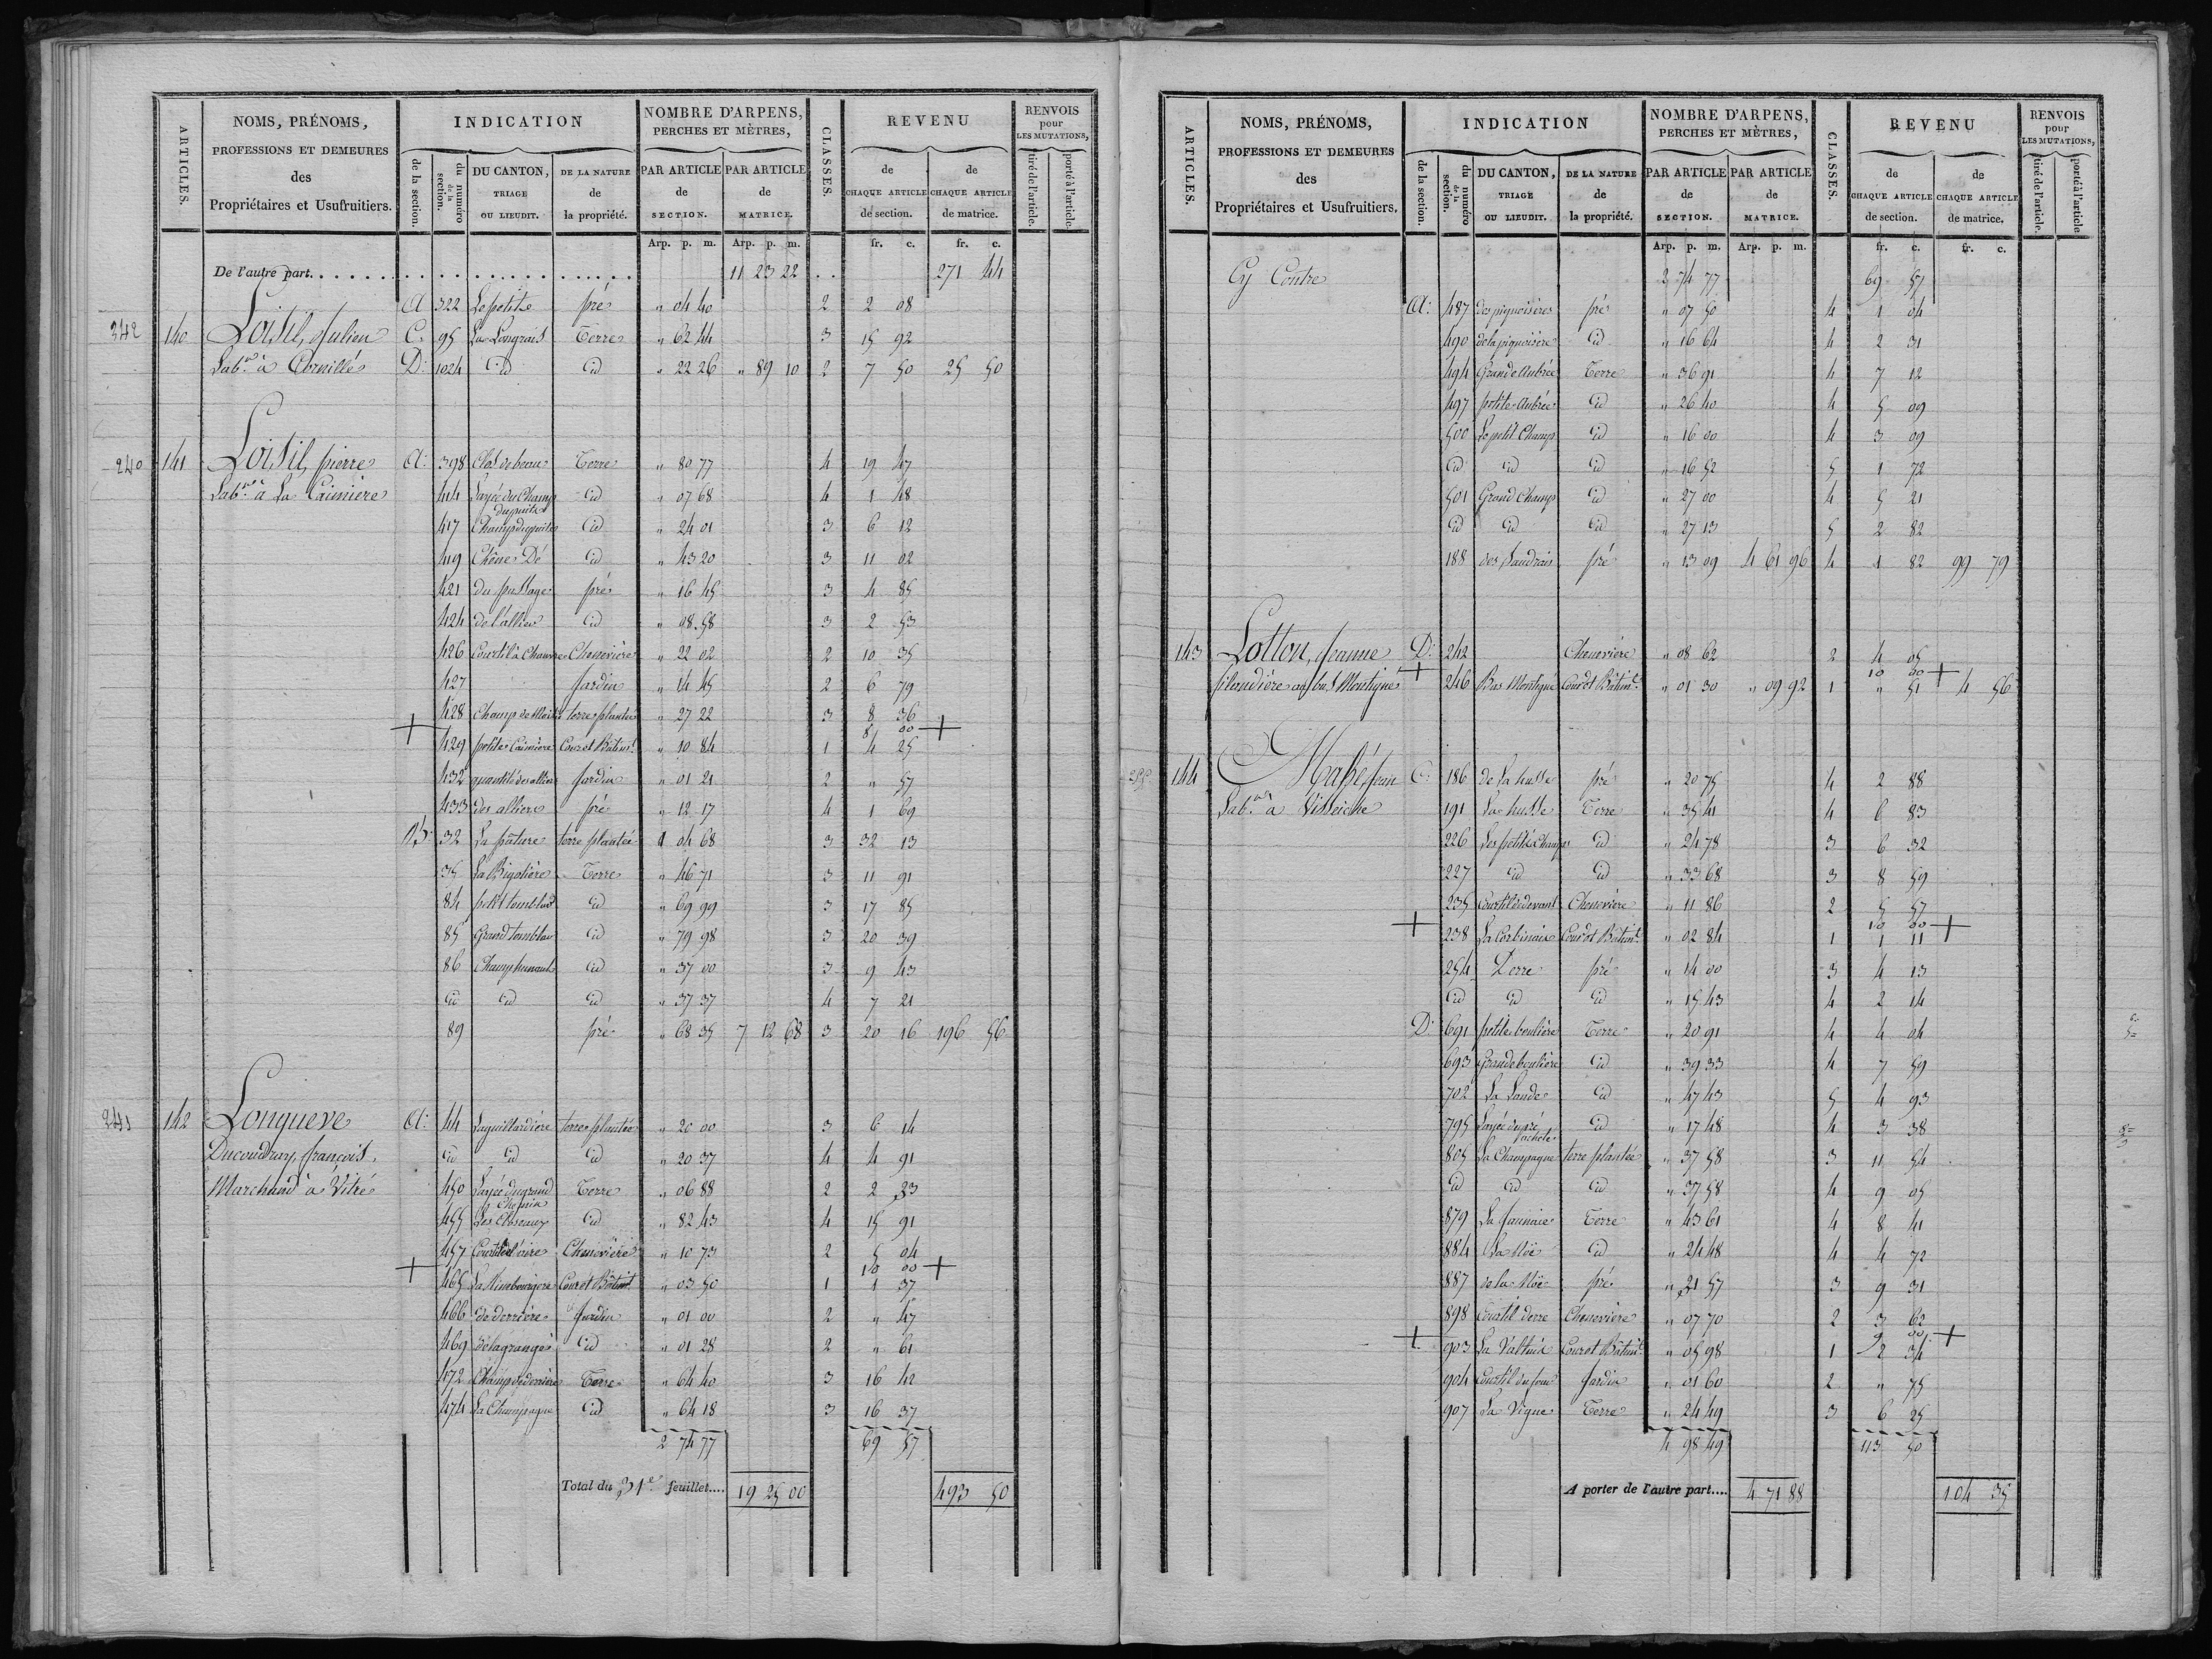 ARTICLES.
NOMS, PRÉNOMS,
PROFESSIONS ET DEMEURES
des
Propriétaires et Usufruitiers.
INDICATION
de la section.
du numéro de la section.
DU CANTON,
TRIAGE
OU LIEUDIT.
DE LA NATURE
de
la propriété.
NOMBRE D'ARPENS,
PERCHES ET MÈTRES,
PAR ARTICLE
de
SECTION.
PAR ARTICLE
de
MATRICE.
CLASSES.
REVENU
de
CHAQUE ARTICLE
de section.
de
CHAQUE ARTICLE
de matrice.
RENVOIS
pour
LES MUTATIONS,
tiré de l'article.
porté à l'article.
Arp. p. m. Arp. p. m. fr. c. fr. c.
De l'autre part. 11 23 22 271 44
A 322 Le petit pré " 04 40 2 2 08
342 140 Loisil, Julien C. 95 La Longrais Terre " 62 44 3 15 92
Lab.r à Cornillé D. 1024 id id " 22 26 " 89 10 2 7 50 25 50
240 141 Loisil, pierre A. 398 Clos de beau Terre " 80 77 4 19 47
Lab.r à La Caimière 414 Layée du Champ du puits id " 07 68 4 1 48
417 Champ du puits id " 24 01 3 6 12
419 Chêne Dé id " 43 20 3 11 02
421 du passage pré " 16 45 3 4 85
424 de l'allier id " 08 58 3 2 53
426 Courtil à Chanvre Chenevière " 22 02 2 10 35
427 Jardin " 14 45 2 6 79
428 Champ de terre plantée " 27 22 3 8 36
+ 8 00 +
429 petite Caimière Cour et Bâtim.t " 10 84 1 4 25
432 Jardin " 01 21 2 " 57
433 des alliers pré " 12 17 4 1 69
B. 32 La pâture terre plantée 1 04 68 3 32 13
35 La Bigotière Terre " 46 71 3 11 91
84 petit tomblau id " 69 99 3 17 85
85 Grand tomblau id " 79 98 3 20 39
86 id " 37 00 3 9 43
id id id " 37 37 4 7 21
89 pré " 68 35 7 12 68 3 20 16 196 56
241 142 Longueve A. 44 Laguillardière terre plantée " 20 00 3 6 14
Ducoudray, françois, id id id " 20 37 4 4 91
Marchand à Vitré 450 Layée du grand Chemin Terre " 06 88 2 2 23
455 Les Closeaux id " 82 43 4 15 91
457 Courtil de l'aire Chenevière " 10 73 2 5 04
+ 10 00 +
465 Cour et Bâtim.t " 03 50 1 1 37
466 de derrière Jardin " 01 00 2 " 47
469 de la grange id " 01 28 2 " 61
472 Champ de derrière Terre " 64 40 3 16 42
474 La Champagne id " 64 18 3 16 37
2 74 77 69 57
Total du 31e feuillet.... 19 25 00 493 50
ARTICLES.
NOMS, PRÉNOMS,
PROFESSIONS ET DEMEURES
des
Propriétaires et Usufruitiers.
INDICATION
de la section.
du numéro de la section.
DU CANTON,
TRIAGE
OU LIEUDIT.
DE LA NATURE
de
la propriété.
NOMBRE D'ARPENS,
PERCHES ET MÈTRES,
PAR ARTICLE
de
SECTION.
PAR ARTICLE
de
MATRICE.
CLASSES.
REVENU
de
CHAQUE ARTICLE
de section.
de
CHAQUE ARTICLE
de matrice.
RENVOIS
pour
LES MUTATIONS,
tiré de l'article.
porté à l'article
Arp. p. m. Arp. p. m. fr. c. fr. c.
Cy Contre 2 74 77 69 57
A. 487 des pignoisères pré " 07 50 4 1 04
490 de la pignoisère id " 16 64 4 2 31
494 Grande Aubrée Terre " 36 91 4 7 12
497 petite Aubrée id " 26 40 4 5 09
500 Le petit Champ id " 16 00 4 3 09
id id id " 16 52 5 1 72
501 Grand Champ id " 27 00 4 5 21
id id id " 27 13 5 2 82
188 des Landrais pré " 13 09 4 61 96 4 1 82 99 79
143 Lotton, Jeanne D. 242 Chenevière " 08 62 2 4 05
+ 10 00 +
filandière au bas Montigné 246 Bas Montigné Cour et Bâtim.t " 01 30 " 09 92 1 " 51 4 56
255 144 Mahé, Jean C. 186 de La husse pré " 20 75 4 2 88
Lab.r à Visseiche 191 La husse Terre " 35 41 4 6 83
226 Les petits Champs id " 24 78 3 6 32
227 id id " 33 68 3 8 59
235 Courtil de devant Chenevière " 11 86 2 5 57
+ 10 00 +
238 La Corbinais Cour et Bâtim.t " 02 84 1 1 11
254 Derre pré " 14 00 3 4 13
id id id " 15 43 4 2 14
D. 691 petite boulière Terre " 20 91 4 4 04
693 Grande boulière id " 39 33 4 7 59
702 La Lande id " 47 43 5 4 93
795 Layée du pré id " 17 48 4 3 38
805 La Champagne terre plantée " 37 58 3 11 54
id id id " 37 58 4 9 05
879 La Jannaie Terre " 43 61 4 8 41
884 La Noë id " 24 48 4 4 72
887 de la Noë pré " 31 57 3 9 31
898 Courtil derre Chenevière " 07 70 2 3 62
+ 9 00 +
903 Cour et Bâtim.t " 05 98 1 2 34
904 Courtil du four Jardin " 01 60 2 " 75
907 La Vigne Terre " 24 49 3 6 25
4 98 49 113 50
A porter de l'autre part.... 4 71 88 104 35